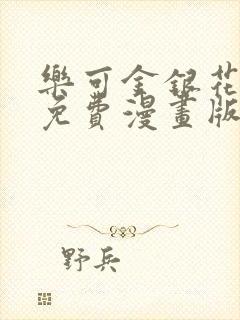 樂可金銀花
免費漫畫版
野兵